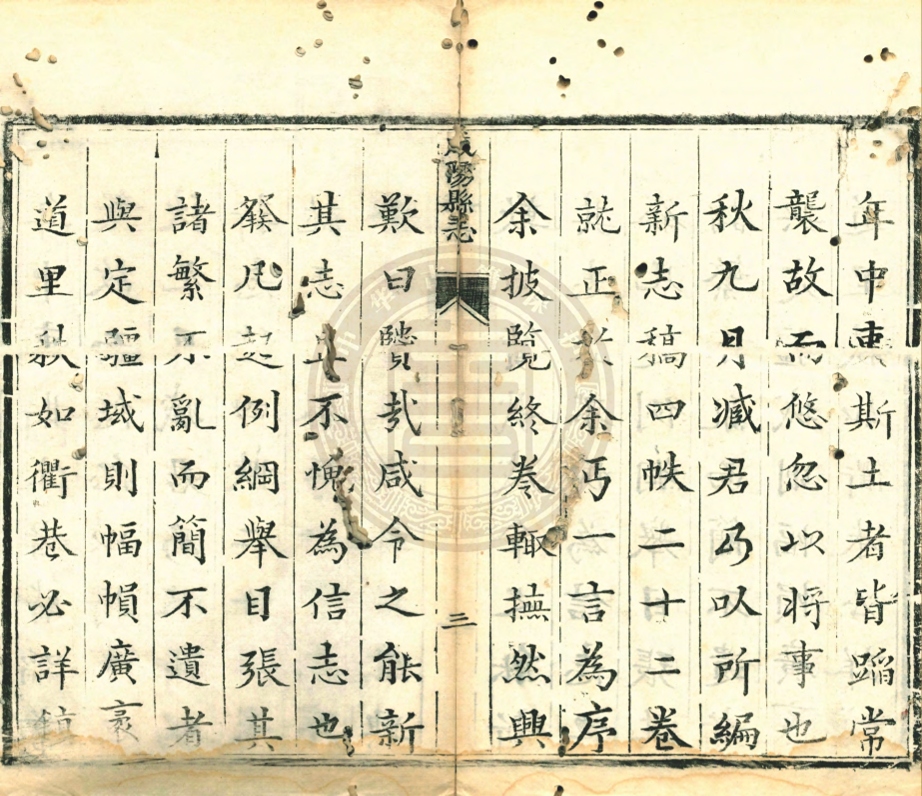 年中斯土者皆蹈常
襲故而悠忽以將事也
秋九月臧君乃以所編
新志稿四帙二十二卷
就正於余丐一言為序
余披覧終卷輙撫然興
咸陽縣志
三
歎曰賢哉咸令之能新
其志不愧為信志也
發凡起例綱舉目張其
諸繁不亂而簡不遺者
與定疆域則幅幀廣袤
道里秩如衢巷必詳鎮